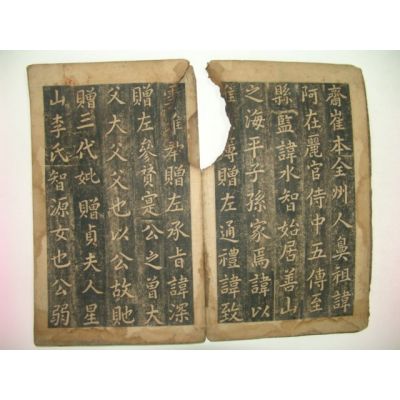 齋崔本全州人鼻祖諱
阿在麗官侍中五傳至
縣監諱水智始居善山
之海平子孫家焉諱以
傳贈左通禮諱致
贈左承旨諱深
贈左參贊寔公之曾大
父大父父也以公故貤
贈三代妣贈貞夫人星
山李氏智源女也公弱